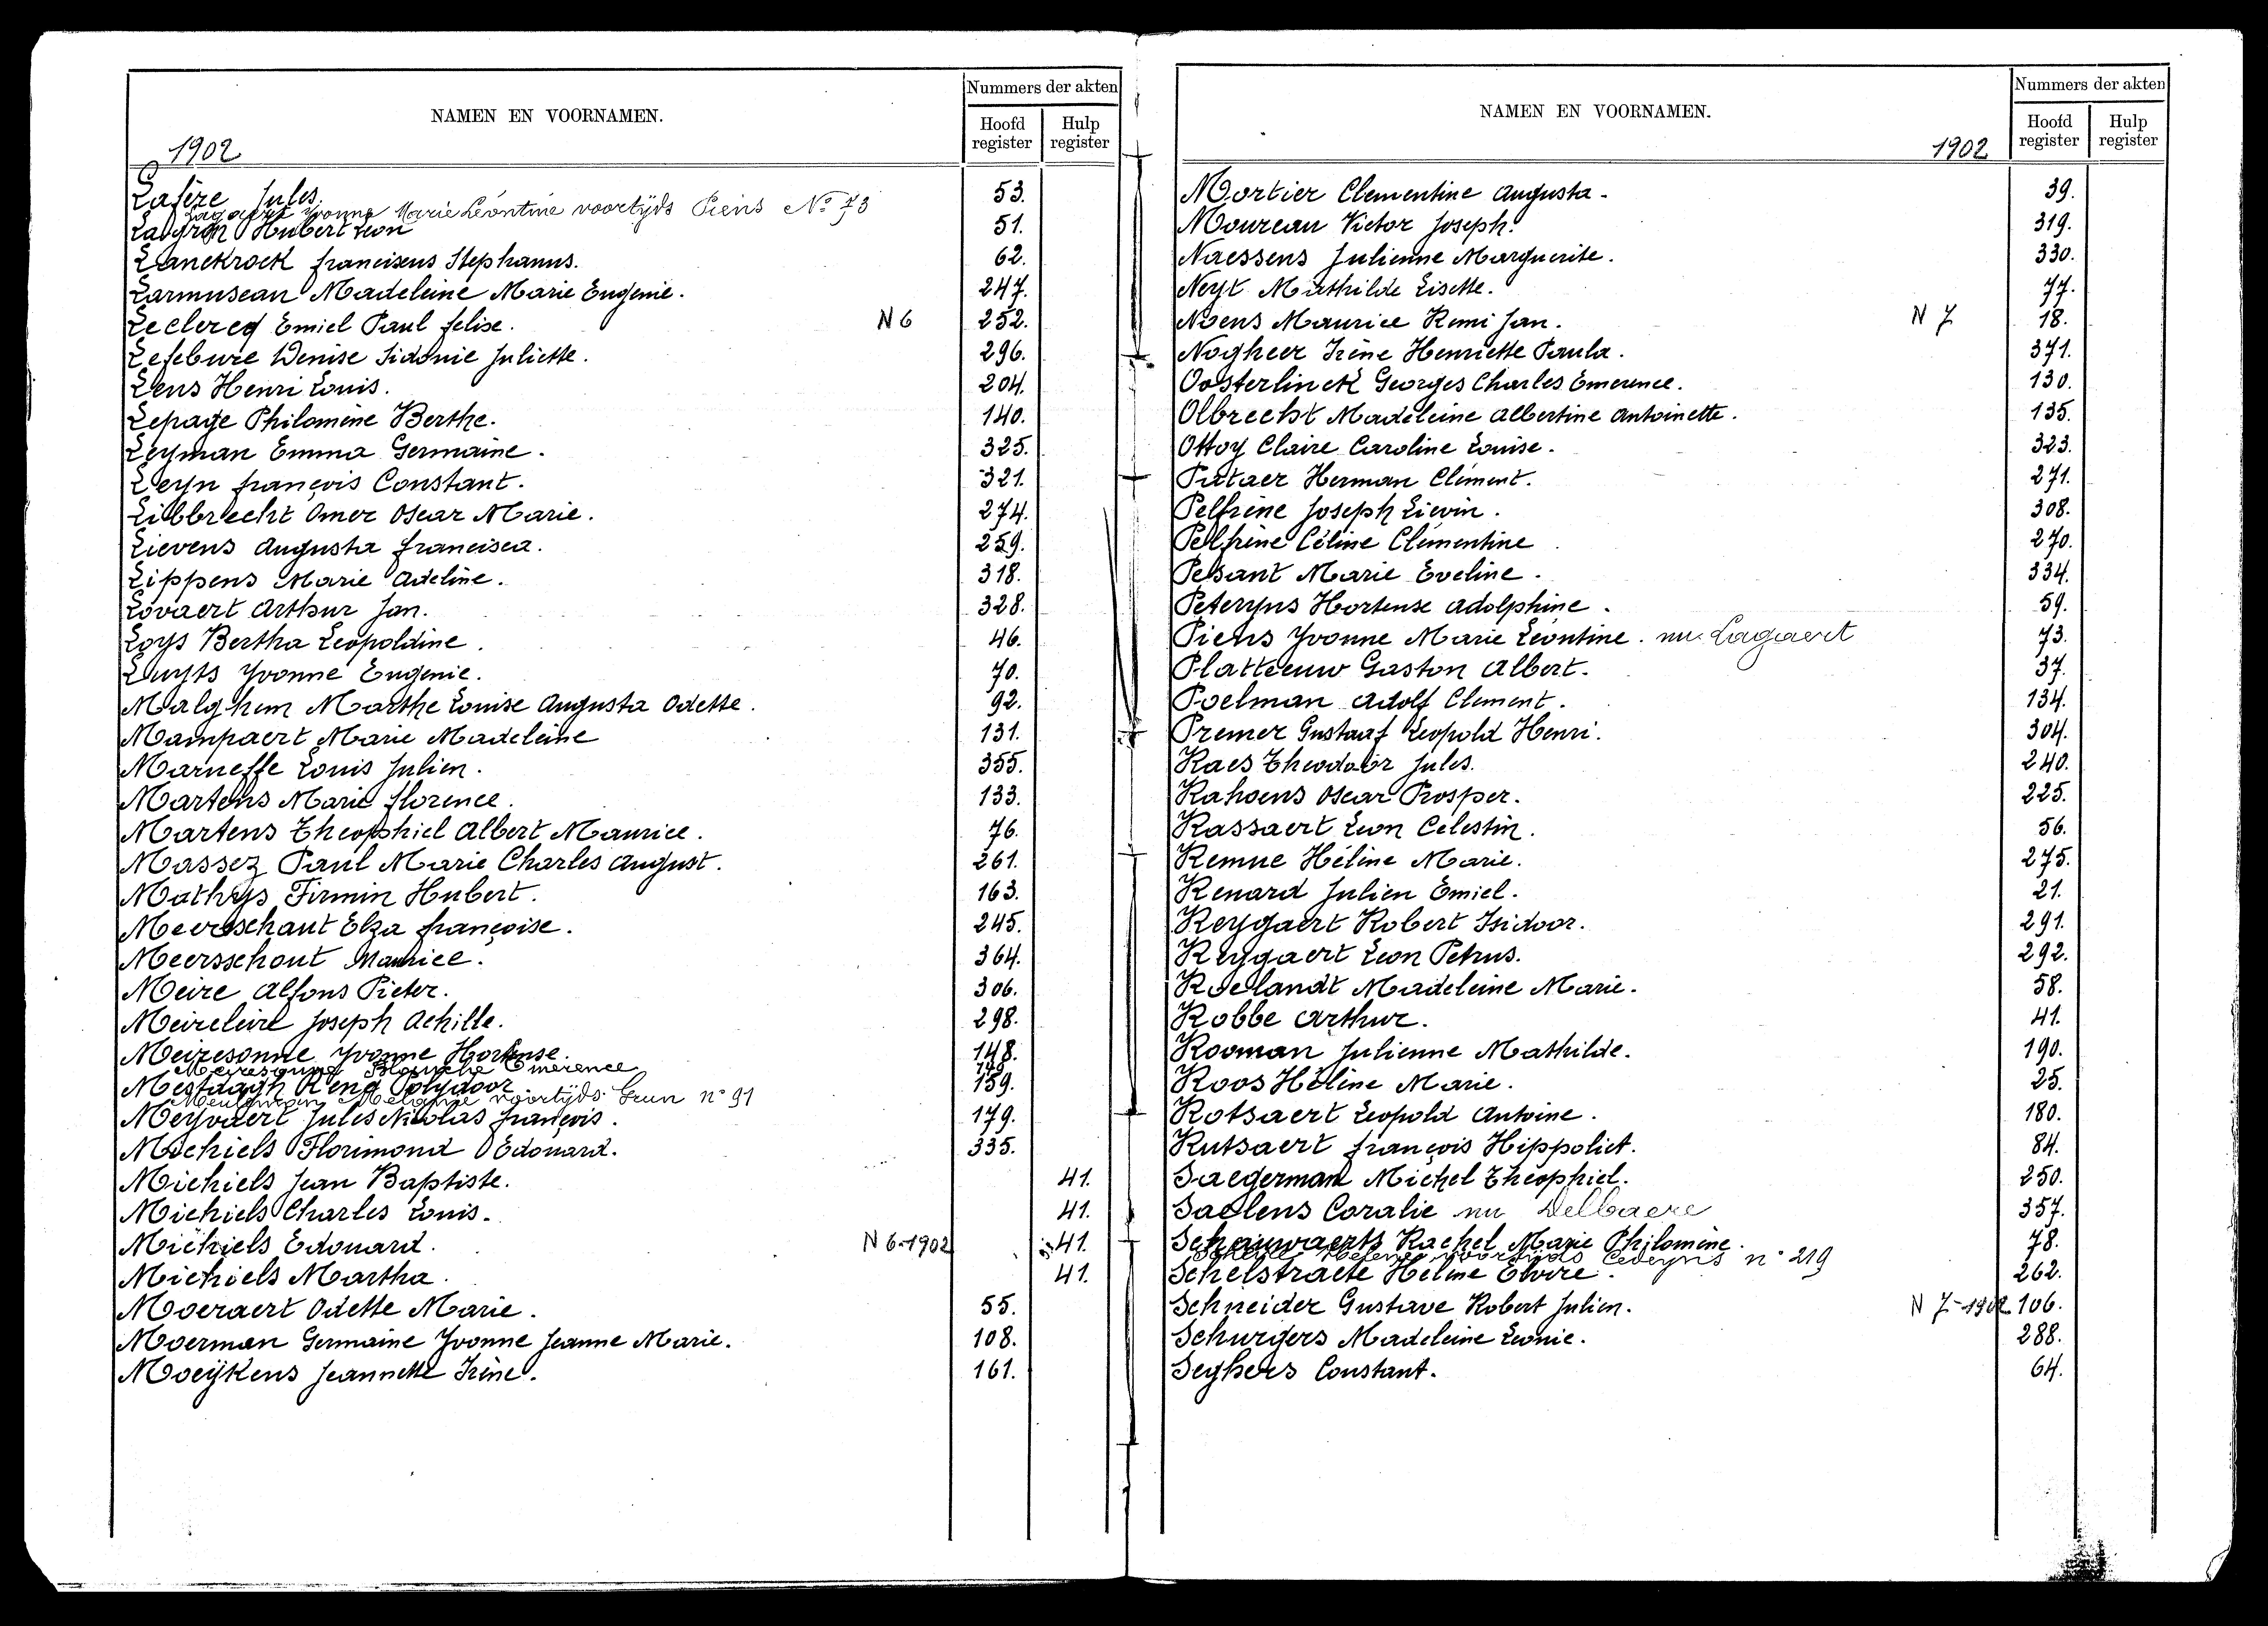 NAMEN EN VOORNAMEN.
Nummers der akten
Hoofd register
Hulp register
1902
Lafère Jules. 53.
Lagaert Yvonne Marie Léontine voortijds Piens No 73
Hubert Léon 51.
Lanckrock francisens Stephanus. 62.
Larmuseau Madeleine Marie Eugenie. 247.
Leclercq Emiel Paul felise. N 6 252.
Lefebure Denise Sidonie Juliette. 296.
Lens Henri Louis. 204.
Lepage Philomène Berthe. 140.
Leyman Emma Germaine. 325.
Leyn françois Constant. 321.
Libbrecht Omer Oscar Marie. 274.
Lievens Augusta francisca. 259.
Lippens Marie Adeline. 318.
Lovaert Arthur Jan. 328.
Loys Bertha Leopoldine. 46.
Luyts Yvonne Eugenie. 70.
Malghem Marthe Louise Augusta Odette. 92.
Mampaert Marie Madeleine 131.
Marneffe Louis Julien. 355.
Martens Marie florence. 133.
Martens Theophiel Albert Maurice. 76.
Massez Paul Marie Charles August. 261.
Mathys Firmin Hubert. 163.
Meersschaut Elza françoise. 245.
Meersschout Maurice. 364.
Meire Alfons Pieter. 306.
Meirleire Joseph Achille. 298.
Meiresonne Yvonne Hortense. 148.
Meiresonne Blanche Emerence 149
Mestdagh René Polydoor 159.
Meuleman Melanie voortijds Grun n° 91
Meyvaert Jules Nicolas françois. 179.
Michiels Florimond Edouard. 335.
Michiels Jean Baptiste. 41.
Michiels Charles Louis. 41.
Michiels Edouard. N 6-1902 41.
Michiels Martha. 41.
Moeraert Odette Marie. 55.
Moerman Germaine Yvonne Jeanne Marie. 108.
Moeykens Jeannette Irène. 161.
NAMEN EN VOORNAMEN.
Nummers der akten
Hoofd register
Hulp register
1902
Mortier Clementine Augusta. 39.
Moureau Victor Joseph. 319.
Naessens Julienne Marguerite. 330.
Neyt Mathilde Lisette. 77.
Noens Maurice Remi Jan. N 7 18.
Nogheer Irène Henriette Paula. 371.
Oosterlinck Georges Charles Emerence. 130.
Olbrecht Madeleine Albertine Antoinette. 135.
Ottoy Claire Caroline Louise. 323.
Pataer Herman Clément. 271.
Pelfrène Joseph Lievin. 308.
Pelfrène Céline Clémentine 270.
Pesant Marie Eveline. 334.
Peteryns Hortense Adolphine. 59.
Piens Yvonne Marie Léontine. nu Lagaert 73.
Platteeuw Gaston Albert. 37.
Poelman Adolf Clement. 134.
Premer Gustaaf Leopold Henri. 304.
Raes Theodoor Jules. 240.
Rahoens Oscar Prosper. 225.
Rassaert Leon Celestin. 56.
Remue Héline Marie. 275.
Renard Julien Emiel. 21.
Reygaert Robert Isidoor. 291.
Reygaert Leon Petrus. 292.
Roelandt Madeleine Marie. 58.
Robbe Arthur. 41.
Rooman Julienne Mathilde. 190.
Roos Héline Marie. 25.
Rotsaert Leopold Antoine. 180.
Rutsaert françois Hippoliet. 84.
Saegerman Michel Theophiel. 250.
Saelens Coralie nu Delbaere 357.
Schauwaerts Rachel Marie Philomène. 78.
Helena voortijds Cedeyns n° 219
Schelstraete Heline Elvire. 262.
Schneider Gustave Robert Julien. N 7-1902 106.
Schurgers Madeleine Leonie. 288.
Seghers Constant. 64.